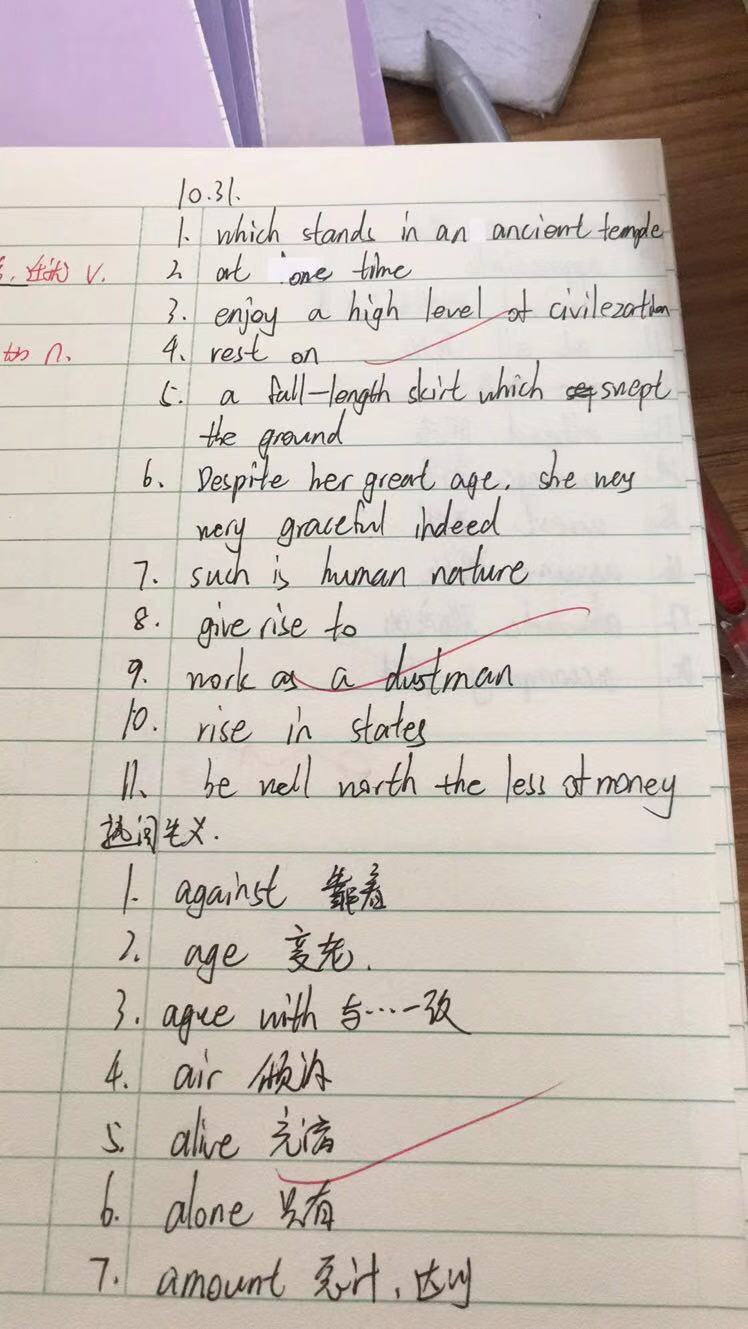 10.31.
1. which stands in an ancient temple
V. 2. at one time
3. enjoy a high level of civilezation
n. 4. rest on
5. a full-length skirt which swept
the ground
6. Despite her great age, she
very graceful indeed
7. such is human nature
8. give rise to
9. work as a dustman
10. rise in states
11. be well worth the less of money
熟词生义.
1. against 靠着
2. age 变老.
3. agree with 与…一致
4. air
5. alive 充满
6. alone 只有
7. amount 总计, 达到